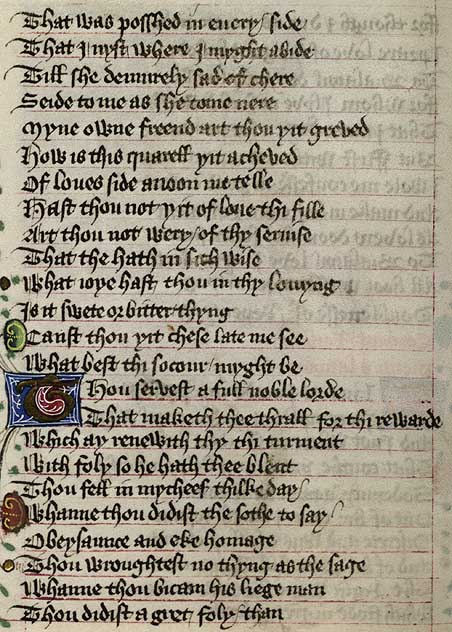 That was posshed in euery side
That I nyst where I myght abide
Till she demurely sad of chere
Seide to me as she come nere
Myne owne freend art thou yit greved
How is this quarell yit acheved
Of loues side anoon me telle
Hast thou not yit of loue thi fille
Art thou not wery of thy seruise
That the hath in sich wise
What ioye hast thou in thy louyng
Is it swete or bitter thyng
Canst thou yit chese late me see
What best thi socour myght be
Thou servest a full noble lorde
That maketh thee thrall for thi rewarde
Which ay renewith thy thi turment
With foly so he hath thee blent
Thou fell in mycheef thilke day
Whanne thou didist the sothe to say
Obeysaunce and eke homage
Thou wroughtest no thyng as the sage
Whanne thou bicam his liege man
Thou didist a gret foly than